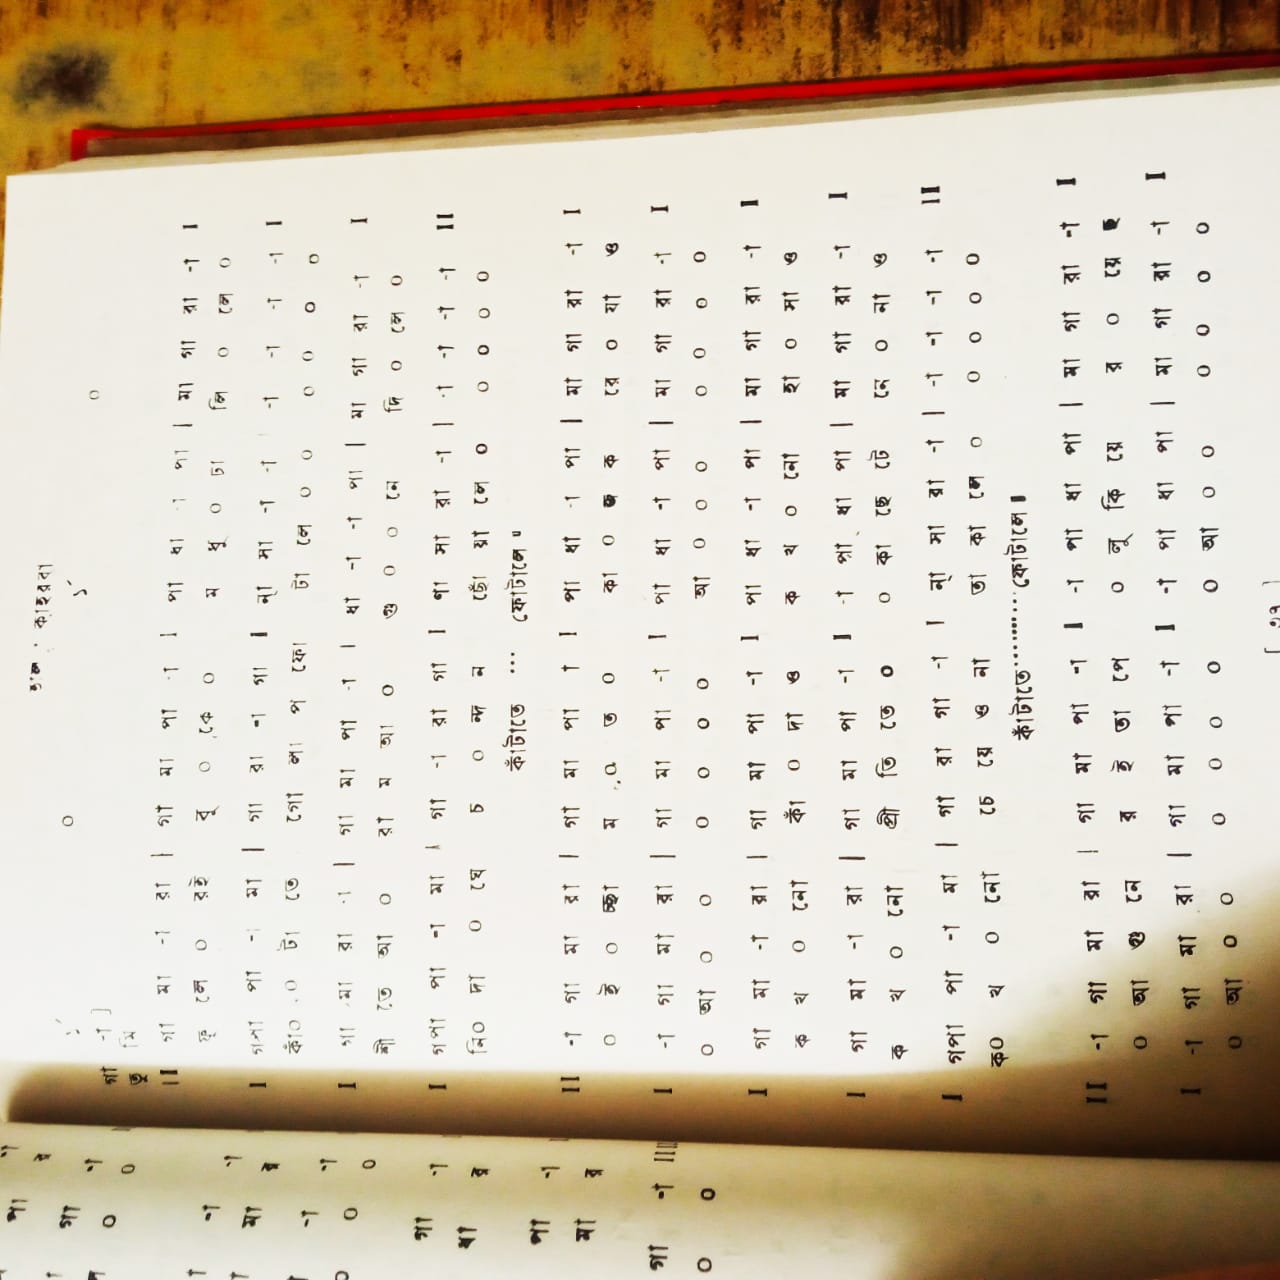 কাহারবা
গা -া ]
তুমি
II গা মা -া রা | গা মা পা -া I পা ধা -া পা | মা গা রা -া I
ফু লে ০ রই বু ০ কে ০ ম ধু ০ ঢা লি ০ লে ০
I গপা পা -া মা | গা রা -া গা I ন্‌া সা -া -া | -া -া -া -া I
কাঁ০ ০ টা তে গো লা প ফো টা লে ০ ০ ০ ০ ০ ০
I গা মা রা -া | গা মা পা -া I ধা -া -া পা | মা গা রা -া I
শী তে আ ০ রা ম আ ০ গু ০ ০ নে দি ০ লে ০
I গপা পা -া মা | গা -া রা গা I ণা সা রা -া | -া -া -া -া II
নি০ দা ০ ঘে চ ০ ন্দ ন ছোঁ য়া লে ০ ০ ০ ০ ০
কাঁটাতে ... ফোটালে ॥
II -া গা মা রা | গা মা পা -া I পা ধা -া পা | মা গা রা -া I
০ ই ০ চ্ছা ম ০ ত ০ কা ০ জ ক রে ০ যা ও
I -া গা মা রা | গা মা পা -া I পা ধা -া পা | মা গা রা -া I
০ আ ০ ০ ০ ০ ০ ০ আ ০ ০ ০ ০ ০ ০ ০
I গা মা -া রা | গা মা পা -া I পা ধা -া পা | মা গা রা -া I
ক খ ০ নো কাঁ ০ দা ও ক খ ০ নো হা ০ সা ও
I গা মা -া রা | গা মা পা -া I -া পা ধা পা | মা গা রা -া I
ক খ ০ নো প্রী তি তে ০ ০ কা ছে টে নে ০ না ও
I গপা পা -া মা | গা রা গা -া I ন্‌া সা রা -া | -া -া -া -া II
ক০ খ ০ নো চে য়ে ও না তা কা লে ০ ০ ০ ০ ০
কাঁটাতে.........ফোটালে ॥
II -া গা মা রা | গা মা পা -া I -া পা ধা পা | মা গা রা -া I
০ আ গু নে র ই তা পে ০ লু কি য়ে র ০ য়ে ছ
I -া গা মা রা | গা মা পা -া I -া পা ধা পা | মা গা রা -া I
০ আ ০ ০ ০ ০ ০ ০ ০ আ ০ ০ ০ ০ ০ ০